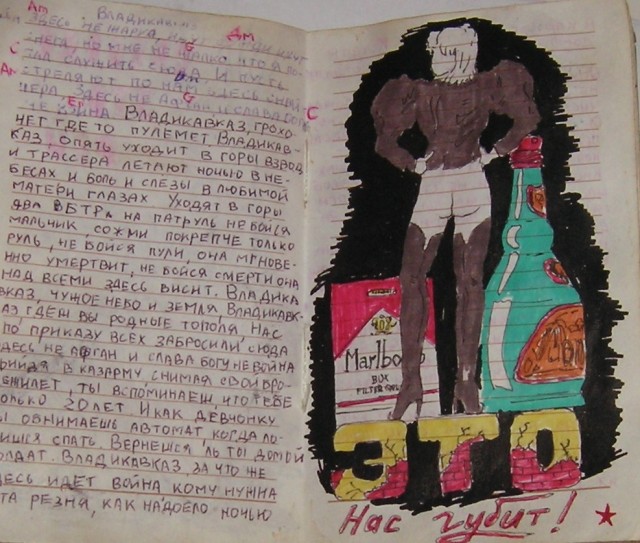 Am
Владикавказ
Дм
Здесь не жарко,
G
снега, но мне не жалко что я по-
C
пал служить сюда. И пусть
Am
стреляют по нам здесь
G
Здесь не Афган и слава
Ер
C
не война. Владикавказ, грохо-
чет где то пулемет Владикав-
каз, опять уходит в горы взвод
и трассера летают ночью в не-
бесах и боль и слёзы в любимой
матери глазах Уходят в горы
два БТРа, на патруль не бойся
мальчик сожми покрепче только
руль, не бойся пули, она мгнове-
нно умертвит, не бойся смерти она
над всеми здесь висит. Владика
вказ, чужое небо и земля Владикавк-
аз где ш вы родные тополя. Нас
по приказу всех забросили сюда
здесь не афган и слава богу не война
в казарму снимая свой бро-
ежилет, ты вспоминаеш, что тебе
олько 20 лет И как девчонку
ы обнимаешь автомат когда ло-
ишся спать. Вернешся 'ль ты домой
олдат. Владикавказ за что же
десь идет война кому нужна
та резня, как надоело ночью
Marlboro
BOX
FILTER
ЭТО
Нас губит!